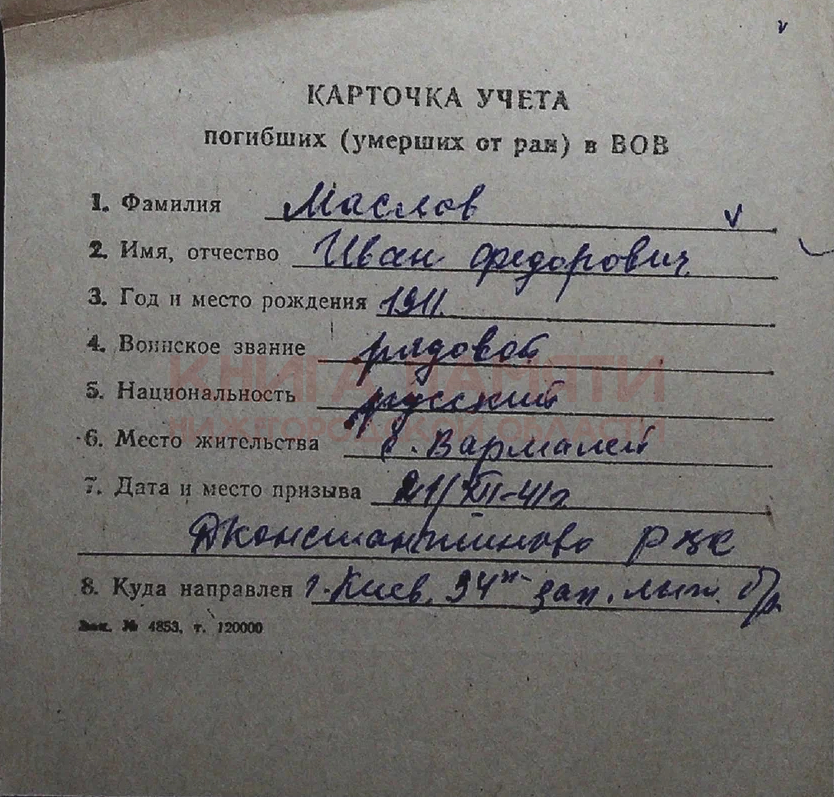 v
КАРТОЧКА УЧЕТА
погибших (умерших от ран) в ВОВ
1. Фамилия Маслов v
2. Имя, отчество Иван Федорович
3. Год и место рождения 1911
4. Воинское звание рядовой
5. Национальность русский
КНИГА ПАМЯТИ
НИЖЕГОРОДСКОЙ ОБЛАСТИ
6. Место жительства с. Вармалей
7. Дата и место призыва 21/XII-41г
Дконстантиново РВК
8. Куда направлен г. Киев, 34 зап. лыж. бр
Зак. № 4853, т. 120000